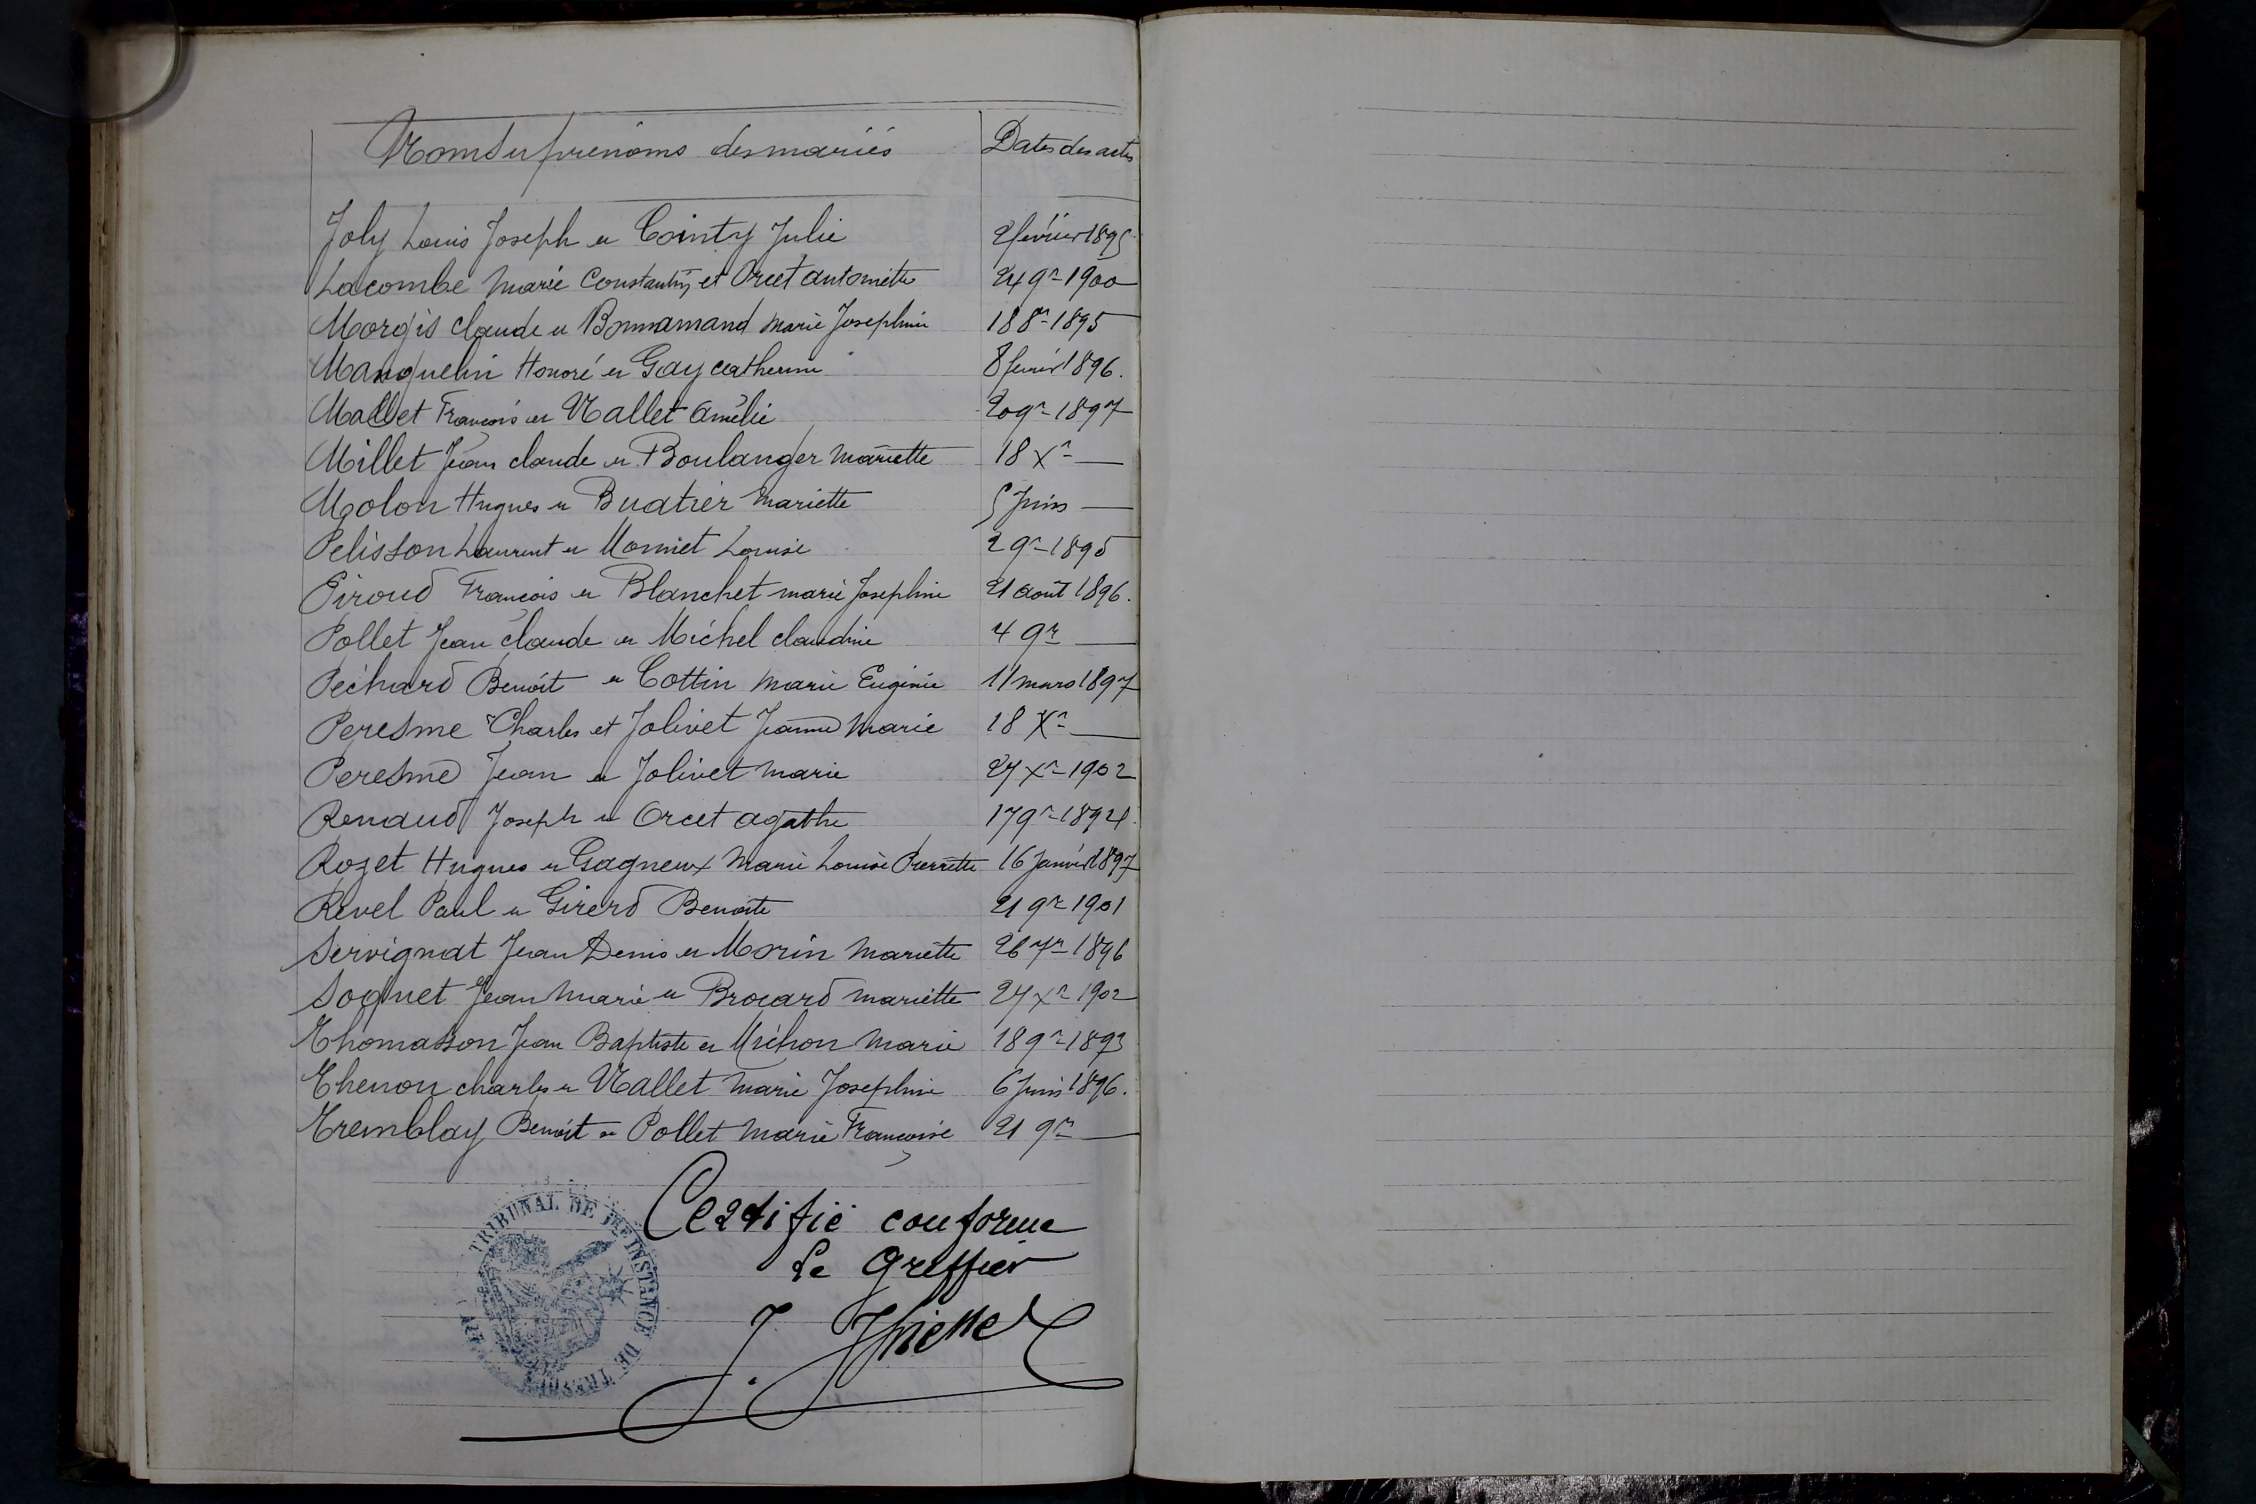 Noms et prénoms des mariés Dates des actes
Joly Louis Joseph et Cointy Julie 2 février 1895
Lacombe Marie Constantin et Orcet Antoinette 24 9re 1900
Morgis Claude et Bonnamand Marie Josephine 18 8re 1895
Manquelin Honoré et Gay Catherine 8 février 1896.
Mallet François et Vallet Amélie 20 9re 1897
Millet Jean Claude et Boulanger Mariette 18 Xre —
Molon Hugues et Buatier Mariette 5 Juin —
Pelisson Laurent et Monnet Louise 2 9re 1895
Piroud François et Blanchet Marie Josephine 21 août 1896.
Pollet Jean Claude et Michel Claudine 4 9re —
Péchard Benoit et Cottin Marie Eugénie 11 mars 1897
Peresme Charles et Jolivet Jeanne Marie 18 Xre —
Peresme Jean et Jolivet Marie 27 Xre 1902
Renaud Joseph et Orcet Agathe 17 9re 1894.
Rozet Hugues et Gagneux Marie Louise Pierrette 16 Janvier 1897
Revel Paul et Girerd Benoite 21 9re 1901
Servignat Jean Denis et Morin Mariette 26 7re 1896
Soquet Jean Marie et Brocard Mariette 27 Xre 1902
Thomasson Jean Baptiste et Michon Marie 18 9re 1893
Thenon Charles et Vallet Marie Josephine 6 Juin 1896.
Tremblay Benoit et Pollet Marie Françoise 21 9re —
Certifié conforme
Le Greffier
TRIBUNAL DE 1re INSTANCE DE